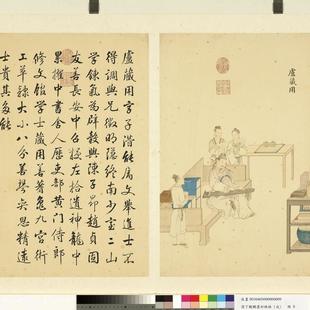 盧藏用
盧藏用字子潛能屬文舉進士不
得調與兄徵明隱終南少室二山
學鍊氣為辟穀與陳子昂趙貞固
友善長安中召授左拾遺神龍中
累擢中書舍人歷吏部黃門侍郎
修文館學士藏用善蓍龜九宮術
工草隸大小八分善琴奕思精遠
士貴其多能